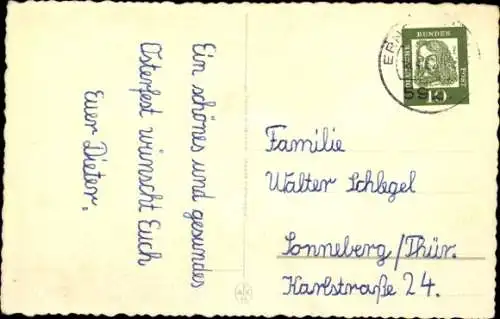 Ein schönes und gesundes
Osterfest wünscht Euch
Euer Dieter.
DEUTSCHE BUNDESPOST
10
Familie
Walter Schlegel
Sonneberg/Thür.
Karlstraße 24.